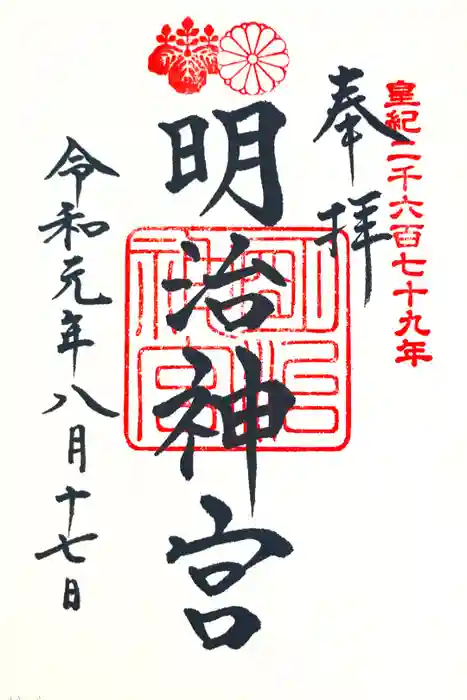 皇紀二千六百七十九年
奉拝
明治神宮
明治神宮
令和元年八月十七日